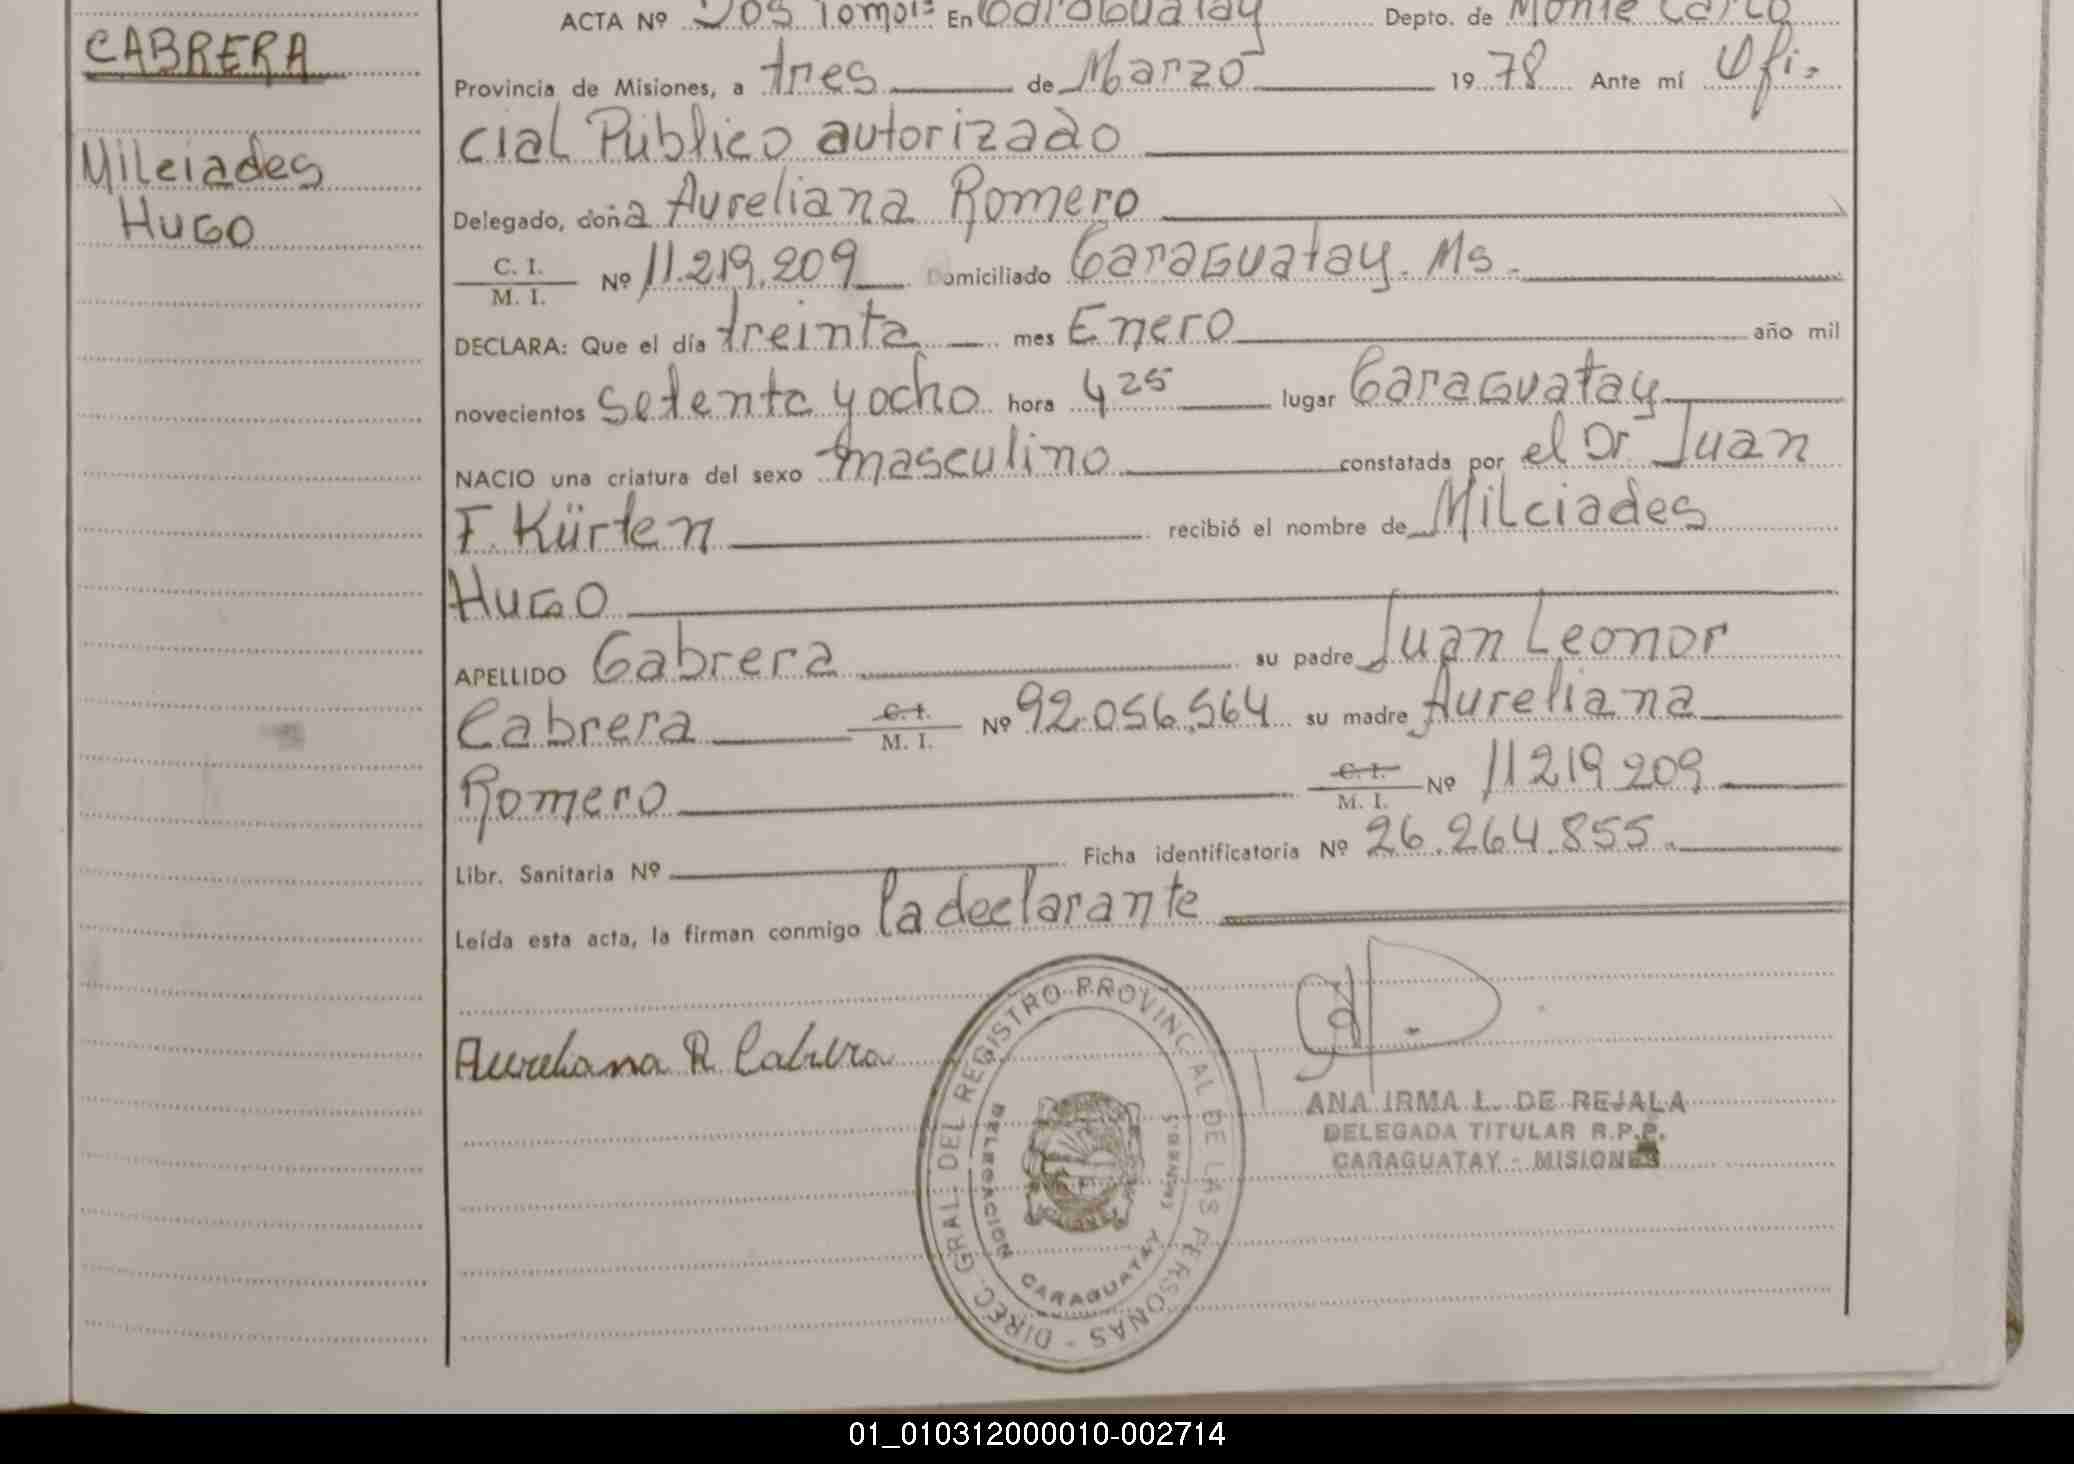 CABRERA
Milciades
HUGO
ACTA Nº Dos Tomo 1º En Caraguatay Depto. de Monte Carlo
Provincia de Misiones, a tres de Marzo 1978 Ante mí Ofi-
cial Público autorizado
Delegado, doña Aureliana Romero
C. I.
M. I. Nº 11.219.209 Domiciliado Caraguatay. Ms.
DECLARA: Que el día treinta mes Enero año mil
novecientos setenta y ocho hora 4 25 lugar Caraguatay
NACIO una criatura del sexo masculino constatada por el Dr Juan
F. Kürten recibió el nombre de Milciades
HUGO
APELLIDO Cabrera su padre Juan Leonor
Cabrera C. I. M. I. Nº 92.056.564 su madre Aureliana
Romero C. I. M. I. Nº 11219209
Libr. Sanitaria Nº Ficha identificatoria Nº 26.264.855.
Leída esta acta, la firman conmigo la declarante
Aureliana R Cabrera
DIREC. GRAL. DEL REGISTRO PROVINCIAL DE LAS PERSONAS -
DELEGACION CARAGUATAY (MNES.)
ANA IRMA L. DE REJALA
DELEGADA TITULAR R.P.P.
CARAGUATAY - MISIONES
01_010312000010-002714